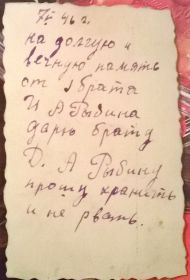 46 г.
на долгую и
вечную память
от брата
И А Рыбина
дарю брату
Д. А Рыбину
прошу хранить
и не рвать.